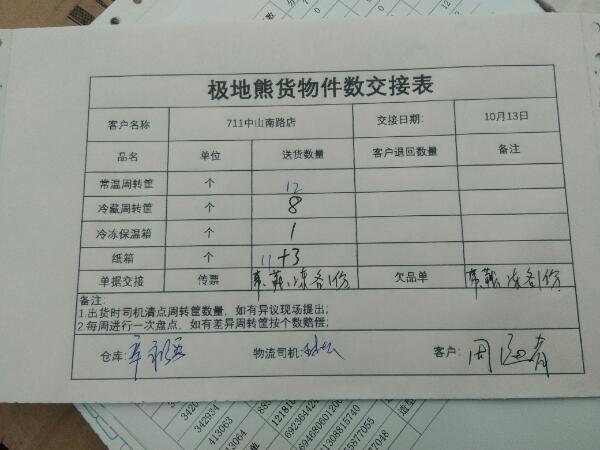 极地熊货物件数交接表
客户名称 711中山南路店 交接日期: 10月13日
品名 单位 送货数量 客户退回数量 备注
常温周转筐 个 12
冷藏周转筐 个 8
冷冻保温箱 个 1
纸箱 个 11+3
单据交接 传票 冻各1份 欠品单 冻各1份
备注:
1.出货时司机清点周转筐数量，如有异议现场提出;
2.每周进行一次盘点，如有差异周转筐按个数赔偿;
仓库: 物流司机: 客户: 周
413063
413064